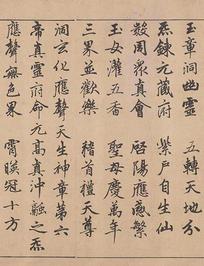 玉章洞幽靈　五轉天地分
炁鍊元藏府　紫戶自生仙
數周衆真會　陽應感繁
玉女灌五香　聖母慶萬年
三界並歡樂　稽首禮天尊
洞玄化應聲天生神章第六
帝真靈府命元高真沖融之炁
應聲無色界　霄暎冠十方